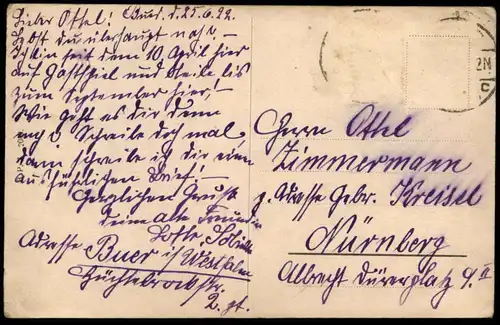 Lieber Ottel! Buer, d. 25.6.22.
Lebst du überhaupt noch –
Ich bin seit dem 10. April hier
auf Gastspiel und bleibe bis
zum September hier! –
Wie geht es dir denn
Schreibe doch mal,
dann schreibe ich dir einen
ausführlichen Brief! –
Herzlichen Gruß
deine alte Freundin
Lotte
Adresse Buer i/ Westfalen
2. Et.
Herrn Ottel
Zimmermann
p. Adresse Gebr. Kreisel
Nürnberg
Albrecht Dürerplatz 9. II
2N
C